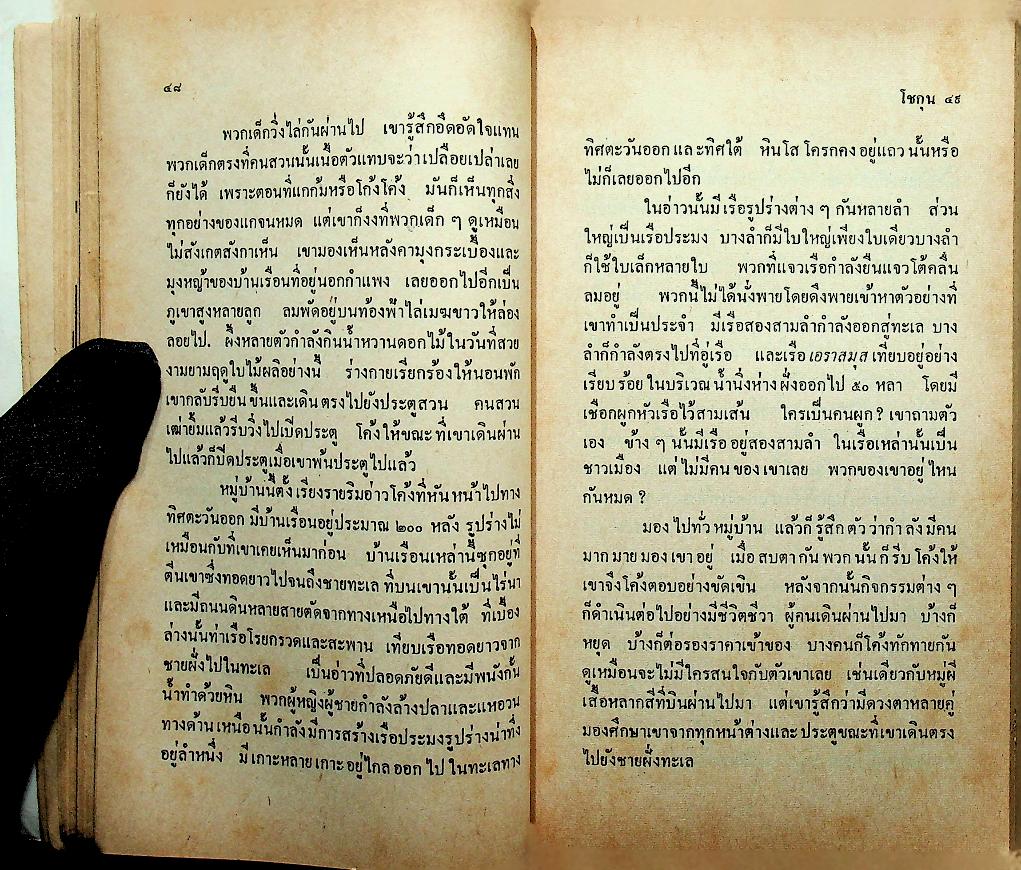 ๔๘
พวกเด็กวิ่งไล่กันผ่านไป เขารู้สึกอึดอัดใจแทน
พวกเด็กตรงที่คนสวนนั้นเนื้อตัวแทบจะว่าเปลือยเปล่าเลย
ก็ยังได้ เพราะตอนที่แกก้มหรือโก้งโค้ง มันก็เห็นทุกสิ่ง
ทุกอย่างของแกจนหมด แต่เขาก็งงที่พวกเด็ก ๆ ดูเหมือน
ไม่สังเกตสังกาเห็น เขามองเห็นหลังคามุงกระเบื้องและ
มุงหญ้าของบ้านเรือนที่อยู่นอกกำแพง เลยออกไปอีกเป็น
ภูเขาสูงหลายลูก ลมพัดอยู่บนท้องฟ้าไล่เมฆขาวให้ล่อง
ลอยไป. ผึ้งหลายตัวกำลังกินน้ำหวานดอกไม้ในวันที่สวย
งามยามฤดูใบไม้ผลิอย่างนี้ ร่างกายเรียกร้องให้นอนพัก
เขากลับรีบยืนขึ้นและเดินตรงไปยังประตูสวน คนสวน
เฒ่ายิ้มแล้วรีบวิ่งไปเปิดประตู โค้งให้ขณะที่เขาเดินผ่าน
ไปแล้วก็ปิดประตูเมื่อเขาพ้นประตูไปแล้ว
หมู่บ้านนี้ตั้งเรียงรายริมอ่าวโค้งที่หันหน้าไปทาง
ทิศตะวันออก มีบ้านเรือนอยู่ประมาณ ๒๐๐ หลัง รูปร่างไม่
เหมือนกับที่เขาเคยเห็นมาก่อน บ้านเรือนเหล่านี้ซุกอยู่ที่
ตีนเขาซึ่งทอดยาวไปจนถึงชายทะเล ที่บนเขานั้นเป็นไร่นา
และมีถนนดินหลายสายตัดจากทางเหนือไปทางใต้ ที่เบื้อง
ล่างนั้นท่าเรือโรยกรวดและสะพาน เทียบเรือทอดยาวจาก
ชายฝั่งไปในทะเล เป็นอ่าวที่ปลอดภัยดีและมีพนังกั้น
น้ำทำด้วยหิน พวกผู้หญิงผู้ชายกำลังล้างปลาและแหอวน
ทางด้านเหนือนั้นกำลังมีการสร้างเรือประมงรูปร่างน่าทึ่ง
อยู่ลำหนึ่ง มีเกาะหลายเกาะอยู่ไกลออกไป ในทะเลทาง
โชกุน ๔๙
ทิศตะวันออกและทิศใต้ หินโสโครกคงอยู่แถวนั้นหรือ
ไม่ก็เลยออกไปอีก
ในอ่าวนั้นมีเรือรูปร่างต่าง ๆ กันหลายลำ ส่วน
ใหญ่เป็นเรือประมง บางลำก็มีใบใหญ่เพียงใบเดียวบางลำ
ก็ใช้ใบเล็กหลายใบ พวกที่แจวเรือกำลังยืนแจวโต้คลื่น
ลมอยู่ พวกนี้ไม่ได้นั่งพายโดยดึงพายเข้าหาตัวอย่างที่
เขาทำเป็นประจำ มีเรือสองสามลำกำลังออกสู่ทะเล บาง
ลำก็กำลังตรงไปที่อู่เรือ และเรือ เอราสมุส เทียบอยู่อย่าง
เรียบร้อย ในบริเวณน้ำนิ่งห่างฝั่งออกไป ๕๐ หลา โดยมี
เชือกผูกหัวเรือไว้สามเส้น ใครเป็นคนผูก? เขาถามตัว
เอง ข้าง ๆ นั้นมีเรืออยู่สองสามลำ ในเรือเหล่านั้นเป็น
ชาวเมือง แต่ไม่มีคนของเขาเลย พวกของเขาอยู่ไหน
กันหมด ?
มองไปทั่วหมู่บ้าน แล้วก็รู้สึกตัวว่ากำลังมีคน
มากมายมองเขาอยู่ เมื่อสบตากันพวกนั้นก็รีบโค้งให้
เขาจึงโค้งตอบอย่างขัดเขิน หลังจากนั้นกิจกรรมต่าง ๆ
ก็ดำเนินต่อไปอย่างมีชีวิตชีวา ผู้คนเดินผ่านไปมา บ้างก็
หยุด บ้างก็ต่อรองราคาเข้าของ บางคนก็โค้งทักทายกัน
ดูเหมือนจะไม่มีใครสนใจกับตัวเขาเลย เช่นเดียวกับหมู่ผี
เสื้อหลากสีที่บินผ่านไปมา แต่เขารู้สึกว่ามีดวงตาหลายคู่
มองศึกษาเขาจากทุกหน้าต่างและประตูขณะที่เขาเดินตรง
ไปยังชายฝั่งทะเล